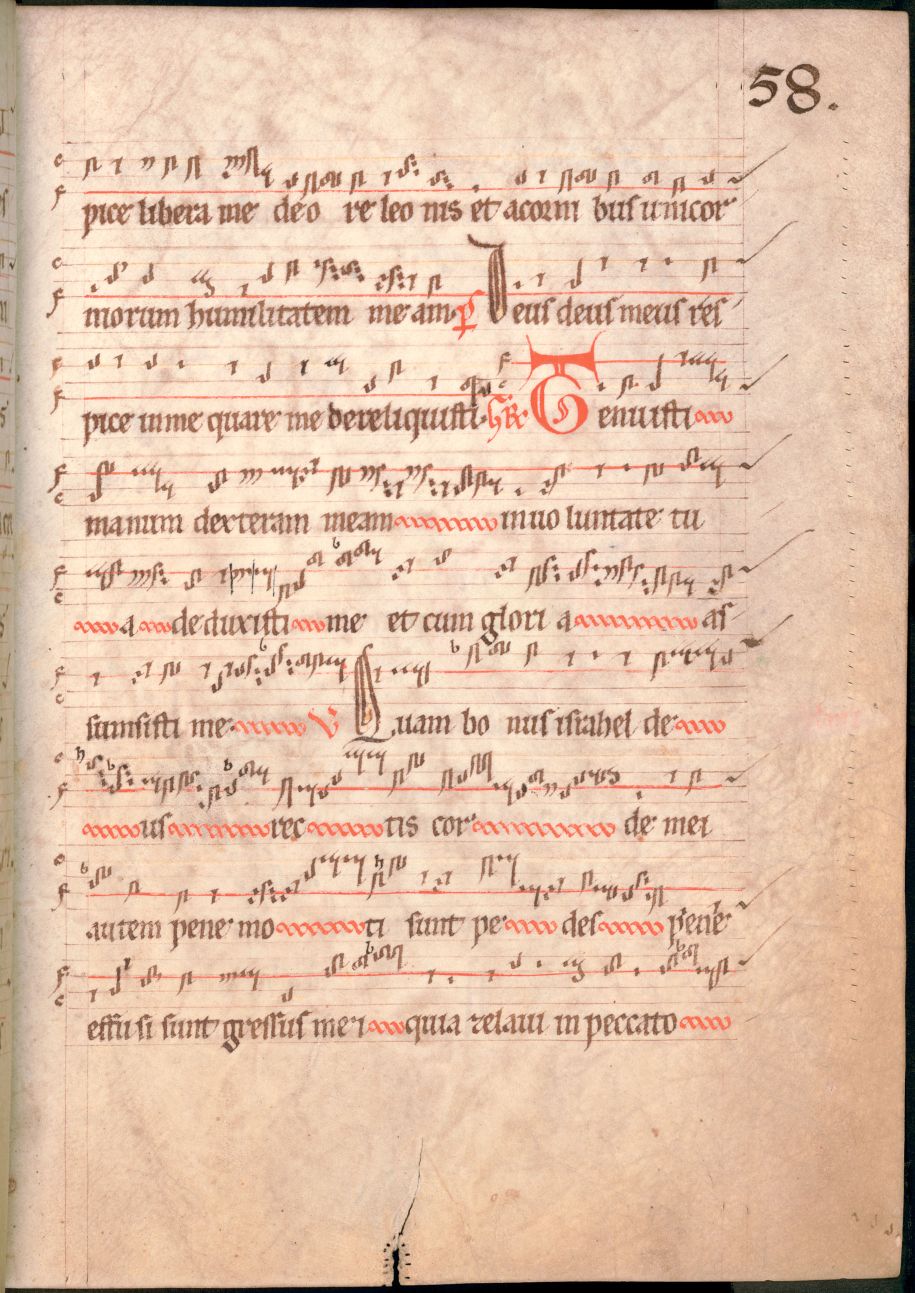 58.
pice libera me de o re leo nis et a corni bus unicor
niorum humilitatem me am. Ps Deus deus meus res
pice in me quare me dereliquisti. Gr Tenuisti
manum dexteram meam in uo luntate tu
a de duxisti me et cum glori a as
sumsisti me. V Quam bo nus israhel de
us rec tis cor de mei
autem pene mo ti sunt pe des pene
effu si sunt gressus me i quia zelaui in peccato